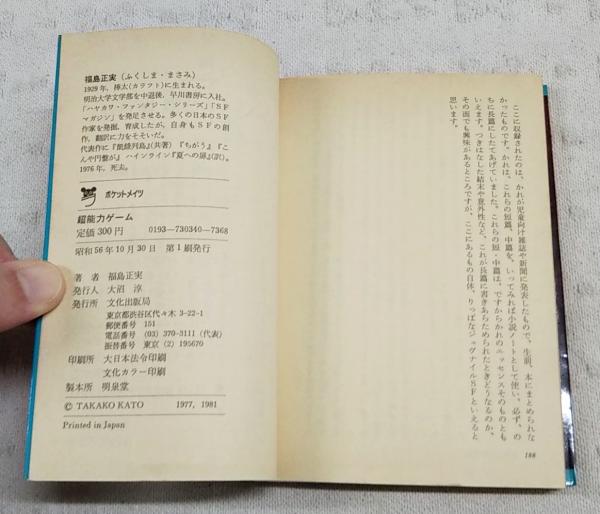 ここに収録されたのは、かれが児童向け雑誌や新聞に発表したもので、生前、本にまとめられな
かったものです。かれは、これらの短篇、中篇を、いってみれば小説ノートとして使い、必ず、の
ちに長篇にしたてあげていました。これらの短・中篇は、ですからかれのエッセンスそのものとも
いえます。つきはなした結末や意外性など、これが長篇に書きあらためられたときどうなるのか、
その面でも興味があるところですが、ここにあるもの自体、りっぱなジュヴナイルSFといえると
思います。
188
福島正実(ふくしま・まさみ)
1929年,樺太(カラフト)に生まれる。
明治大学文学部を中退後,早川書房に入社。
「ハヤカワ・ファンタジー・シリーズ」「SF
マガジン」を発足させる。多くの日本のSF
作家を発掘,育成したが,自身もSFの創
作,翻訳に力をそそいだ。
代表作に『飢餓列島』(共著)『ちがう』『こ
んや円盤が』ハインライン『夏への扉』(訳)。
1976年,死去。
ポケットメイツ
超能力ゲーム
定価300円 0193—730340—7368
昭和56年10月30日 第1刷発行
著 者 福島正実
発行人 大沼 淳
発行所 文化出版局
東京都渋谷区代々木3-22-1
郵便番号 151
電話番号 (03) 370-3111 (代表)
振替番号 東京 (2) 195670
印刷所 大日本法令印刷
文化カラー印刷
製本所 明泉堂
© TAKAKO KATO 1977, 1981
Printed in Japan